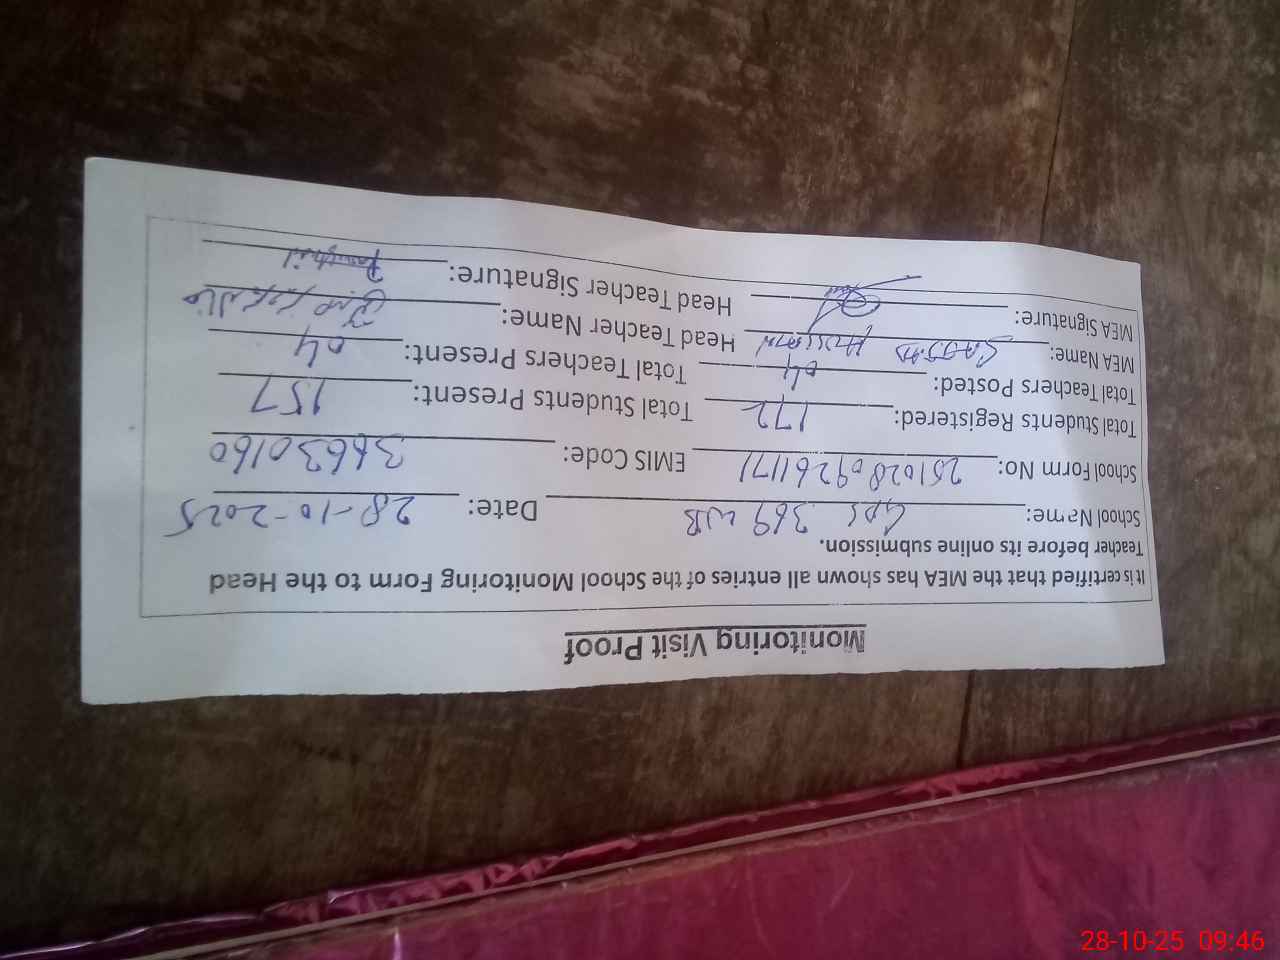 Monitoring Visit Proof
It is certified that the MEA has shown all entries of the School Monitoring Form to the Head
Teacher before its online submission.
School Name: GPS 369 WB Date: 28-10-2025
School Form No: 25102809261171 EMIS Code: 36630160
Total Students Registered: 172 Total Students Present: 157
Total Teachers Posted: 04 Total Teachers Present: 04
MEA Name: Sajjad Hussain Head Teacher Name:
MEA Signature: Head Teacher Signature:
28-10-25 09:46